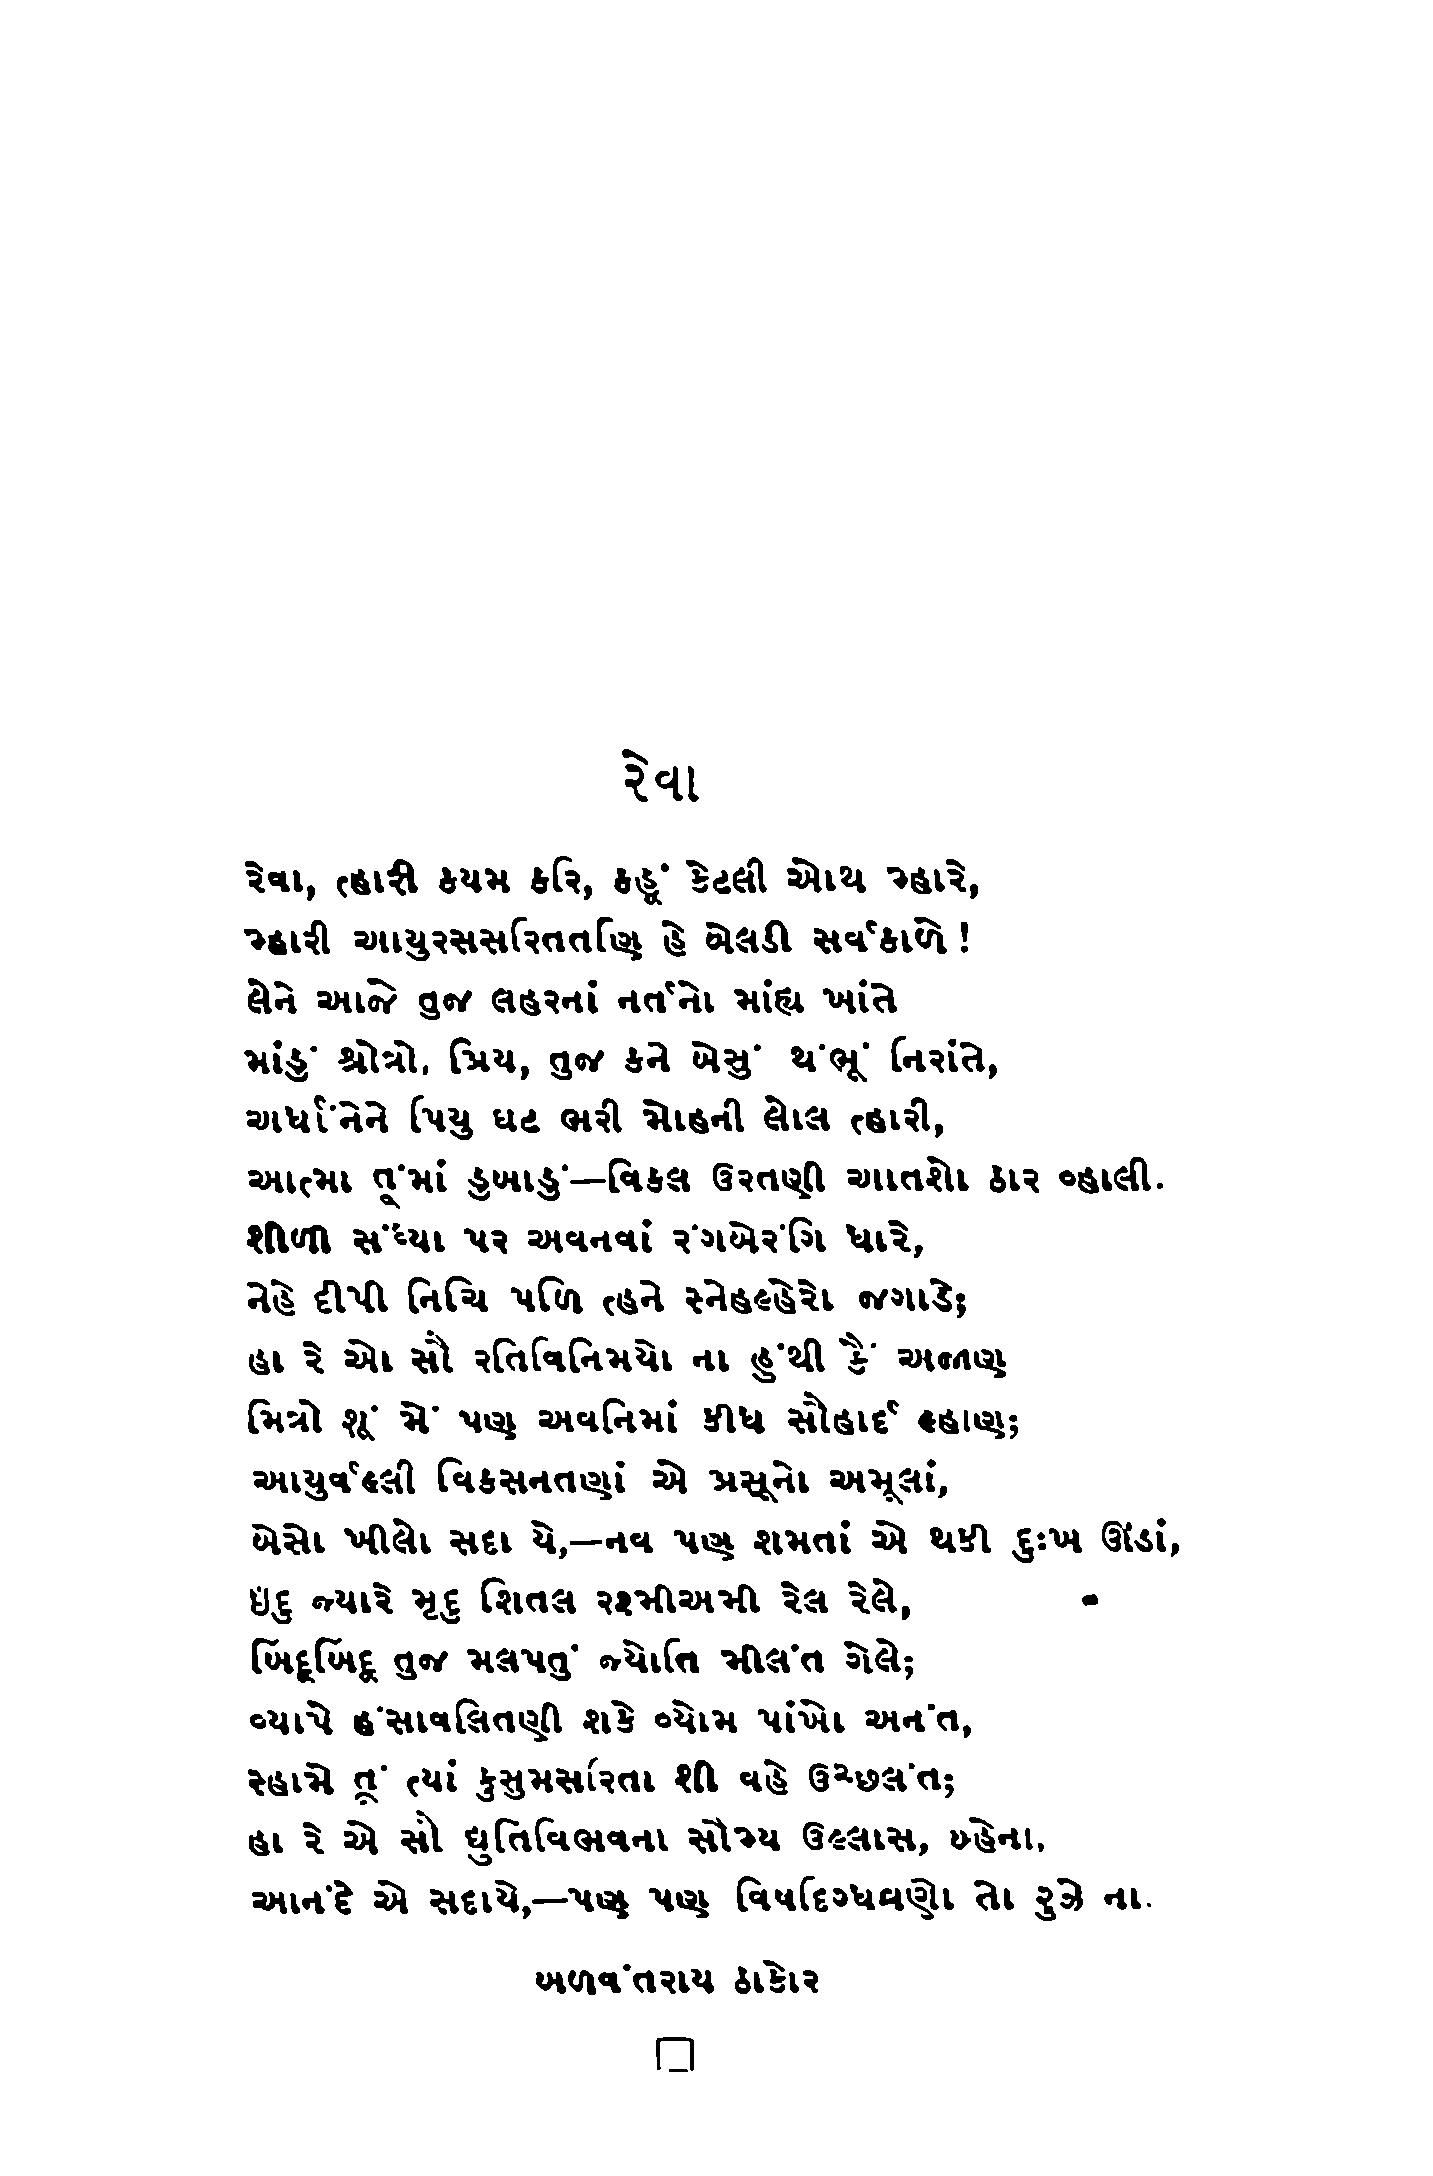 રેવા
રેવા, ત્હારી કયમ કરિ, કહૂં કેટલી ઓથ મ્હારે,
મ્હારી આયુરસસરિતતણિ હે બેલડી સર્વકાળે !
લેને આજે તુજ લહરનાં નર્તનો માંહ્ય ખાંતે
માંડું શ્રોત્રો, પ્રિય, તુજ કને બેસું થંભૂં નિરાંતે,
અર્ધાંનેને પિયુ ઘટ ભરી મોહની લોલ ત્હારી,
આત્મા તૂંમાં ડુબાડું—વિકલ ઉરતણી આતશો ઠાર વ્હાલી.
શીળી સંધ્યા પર અવનવાં રંગબેરંગિ ધારે,
નેહે દીપી નિચિ પળિ ત્હને સ્નેહલ્હેરો જગાડે;
હા રે ઓ સૌ રતિવિનિમયો ના હુંથી કૈં અજાણ
મિત્રો શૂં મેં પણ અવનિમાં કીધ સૌહાર્દ લ્હાણ;
આયુર્વલ્લી વિકસનતણાં એ પ્રસૂનો અમૂલાં,
બેસો ખીલો સદા યે,—નવ પણ શમતાં એ થકી દુઃખ ઊંડાં,
ઇંદુ જ્યારે મૃદુ શિતલ રશ્મીઅમી રેલ રેલે,
બિંદૂબિંદૂ તુજ મલપતું જ્યોતિ મીલંત ગેલે;
વ્યાપે હંસાવલિતણી શકે વ્યોમ પાંખો અનંત,
સ્હામે તૂં ત્યાં કુસુમસરિતા શી વહે ઉચ્છલંત;
હા રે એ સૌ દ્યુતિવિભવના સૌમ્ય ઉલ્લાસ, બ્હેના,
આનંદે એ સદાયે,—પણ પણ વિષદિગ્ધવ્રણો તો રુઝે ના.
બળવંતરાય ઠાકોર